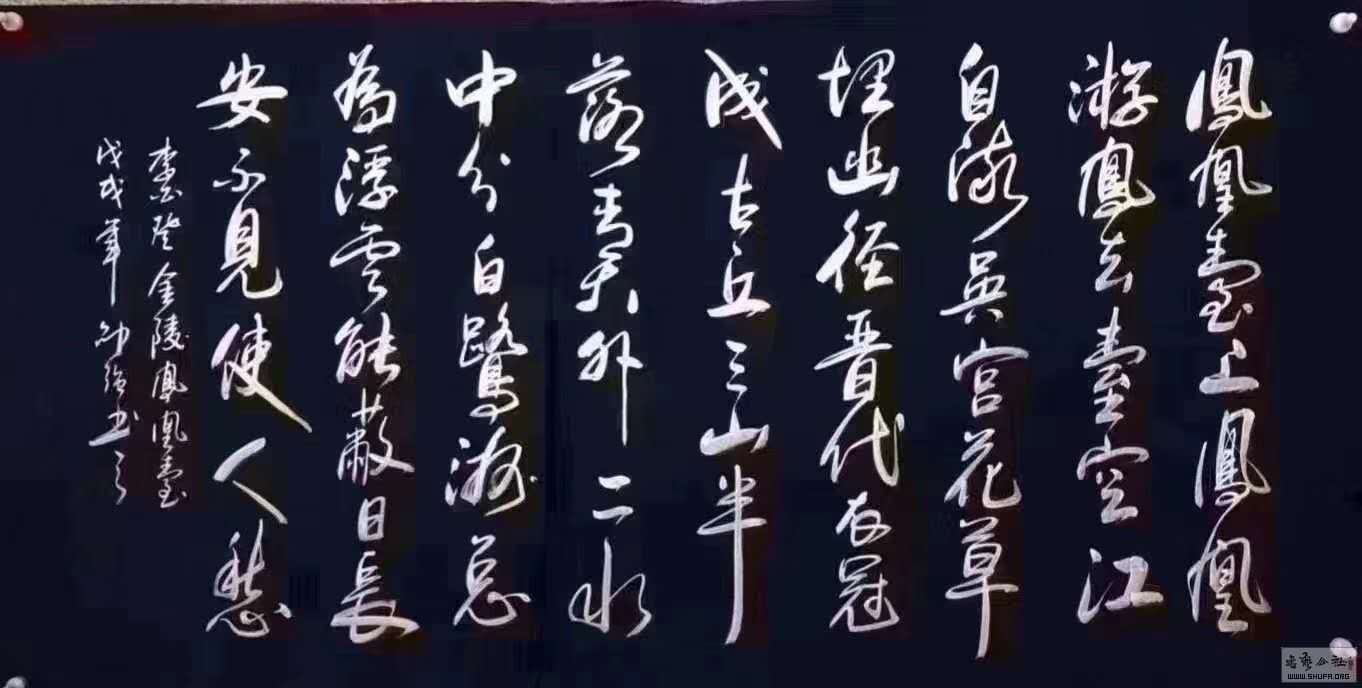 鳳凰臺上鳳凰
游鳳去臺空江
自流吳宮花草
埋幽径晋代衣冠
成古丘三山半
落青天外二水
中分白鷺洲总
為浮雲能蔽日長
安不見使人愁
李白登金陵鳳凰臺
戊戌年 书
WWW.SHUFA.ORG